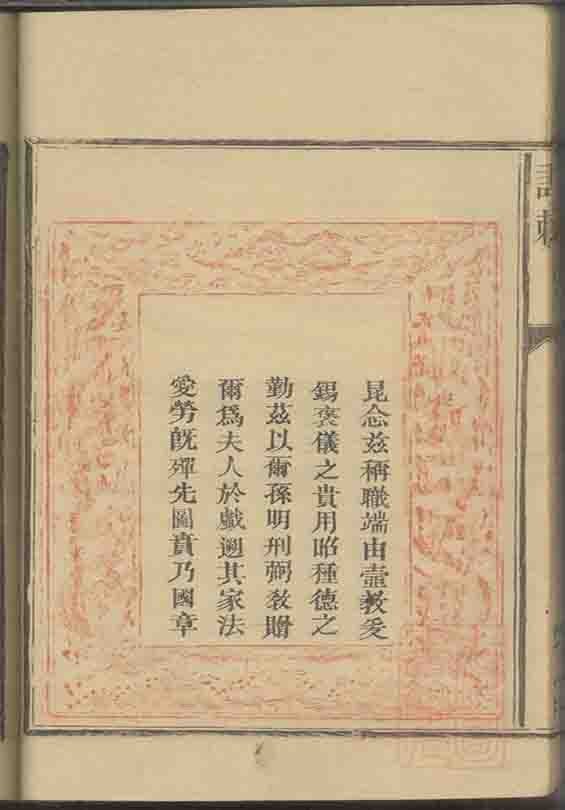 昆念茲稱職端由壼教爰
錫褒儀之貴用昭種德之
勤茲以爾孫明刑弼教贈
爾爲夫人於戲遡其家法
愛勞旣殫先圖賁乃國章